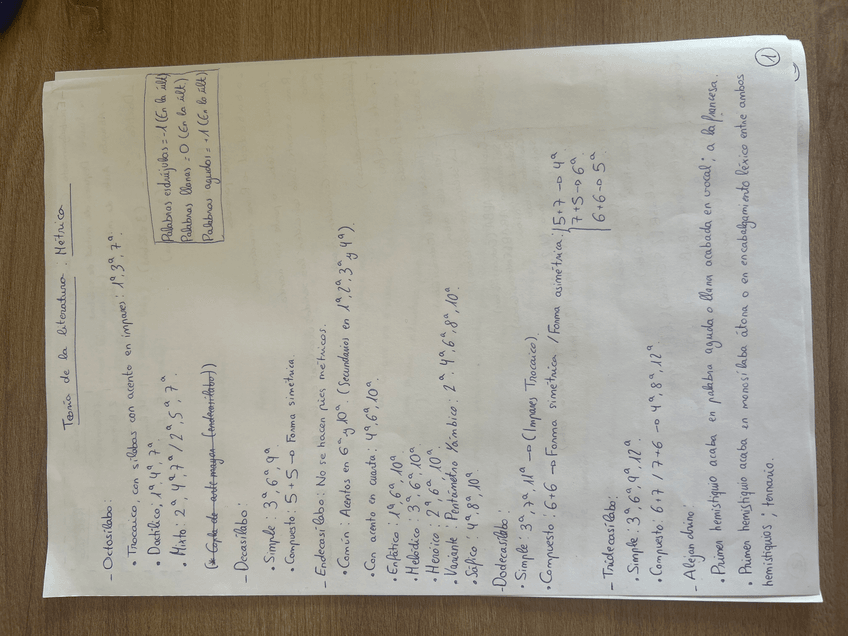 Teoría de la literatura : Métrica
①
- Octosílabo:
• Trocaico, con sílabas con acento en impares: 1ª, 3ª, 7ª.
• Dactílico; 1ª, 4ª, 7ª
• Mixto: 2ª, 4ª, 7ª / 2ª, 5ª, 7ª
Palabras esdrújulas = -1 (En la últ)
Palabras llanas = 0 (En la últ)
Palabras agudas = +1 (En la últ)
(* Copla de arte mayor (endecasílabo))
- Decasílabo:
• Simple: 3ª, 6ª, 9ª
• Compuesto: 5+5 → Forma simétrica
- Endecasílabo: No se hacen pies métricos.
• Común: Acentos en 6ª y 10ª (Secundarios en 1ª, 2ª, 3ª y 4ª).
• Con acento en cuarta: 4ª, 6ª, 10ª
• Enfático: 1ª, 6ª, 10ª
• Melódico: 3ª, 6ª, 10ª
• Heroico: 2ª, 6ª, 10ª
• Variante: Pentámetro Yámbico: 2ª, 4ª, 6ª, 8ª, 10ª
• Sáfico: 4ª, 8ª, 10ª
- Dodecasílabo:
• Simple: 3ª, 7ª, 11ª → (Impares Trocaico).
• Compuesto: 6+6 → Forma simétrica / Forma asimétrica: 5+7 → 4ª
7+5 → 6ª
6+6 → 5ª
- Tridecasílabo:
• Simple: 3ª, 6ª, 9ª, 12ª
• Compuesto: 6+7 / 7+6 → 4ª, 8ª, 12ª
- Alejandrino:
• Primer hemistiquio acaba en palabra aguda o llana acabada en vocal; a la francesa.
• Primer hemistiquio acaba en monosílaba átona o en encabalgamiento léxico entre ambos
hemistiquios; ternario.